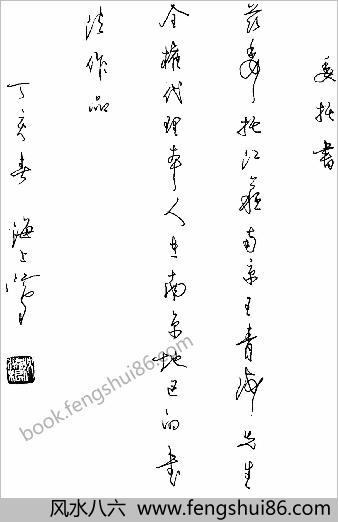 委托书
兹委托江苏南京王青 先生
全权代理本人在南京地区的书
法作品
丁亥春 海上
book.fengshui86.com
风水八六 www.fengshui86.com